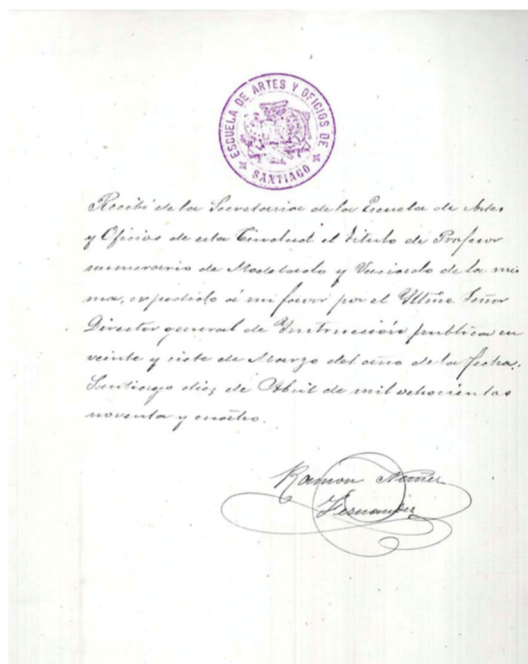 ESCUELA DE ARTES Y OFICIOS DE
SANTIAGO
Recibí de la Secretaria de la Escuela de Artes
y Oficios de esta Ciudad el título de Profesor
numerario de Modelado y Vaciado de la mis
ma, expedido á mi favor por el Yltmo Señor
Director general de Ynstrucción publica en
veinte y siete de Marzo del año de la fecha.
Santiago diez de Abril de mil ochocientos
noventa y cuatro.
Ramon Nuñez
Fernandez